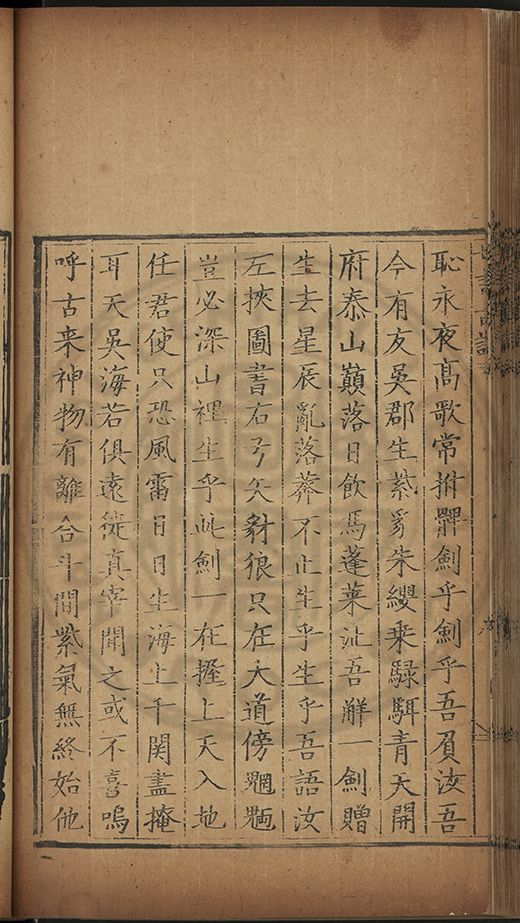 恥永夜高歌常拊髀劍乎劍乎吾負汝吾
今有友吳郡生紫豸朱纓乘騄駬青天開
府泰山巔落日飲馬蓬萊沚吾解一劍贈
生去星辰亂落莽不止生乎生乎吾語汝
左挾圖書右弓矢豺狼只在大道傍魍魎
豈必深山裡生乎此劍一在握上天入地
任君使只恐風雷日日生海上千關盡掩
耳天吳海若俱遠徙真宰聞之或不喜嗚
呼古来神物有離合斗間紫氣無終始他